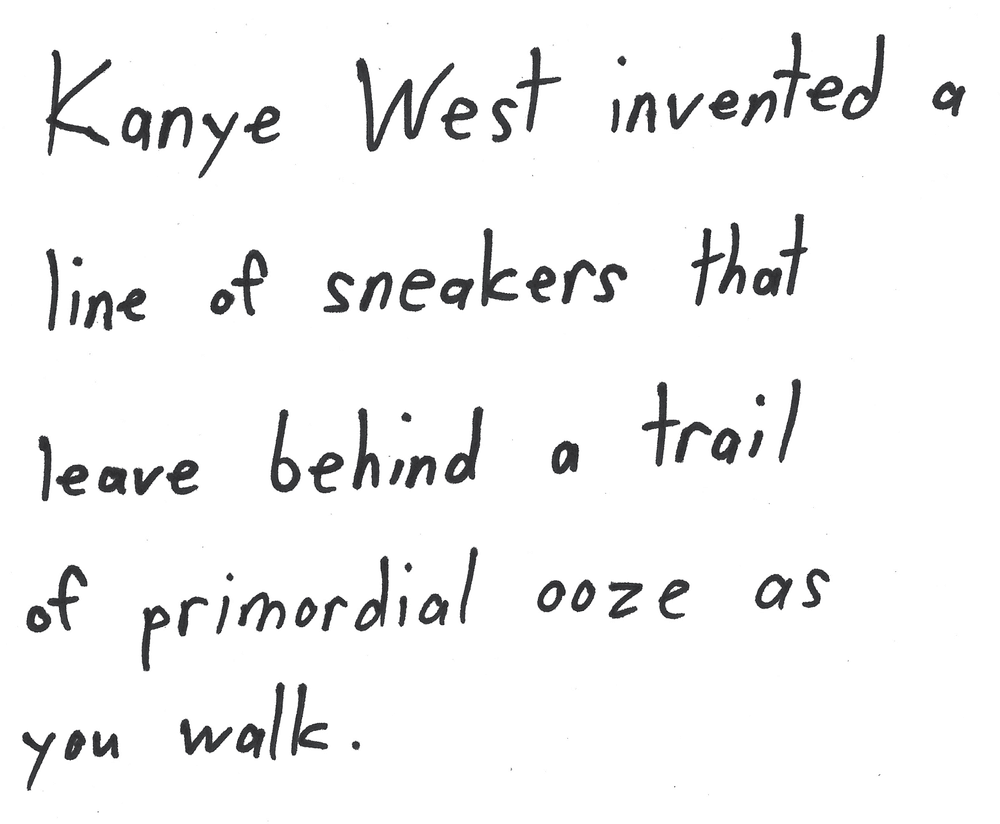 Kanye West invented a
line of sneakers that
leave behind a trail
of primordial ooze as
you walk.